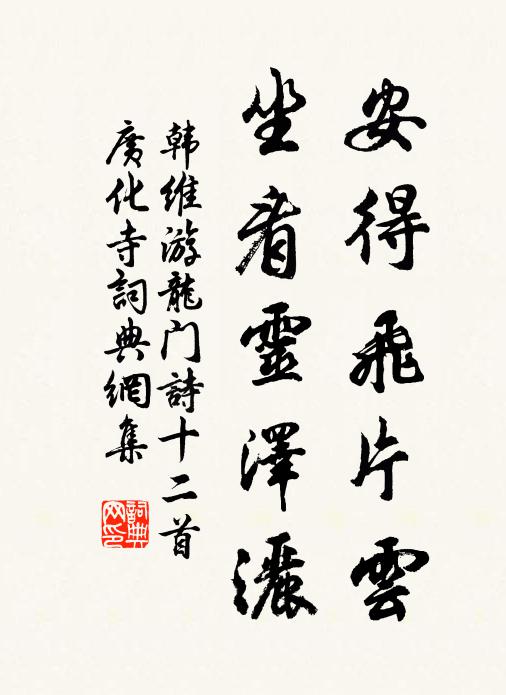 安得飛片雲
坐看靈澤灑
韩維游龍门詩十二首
廣化寺詞典網集
詞典网印